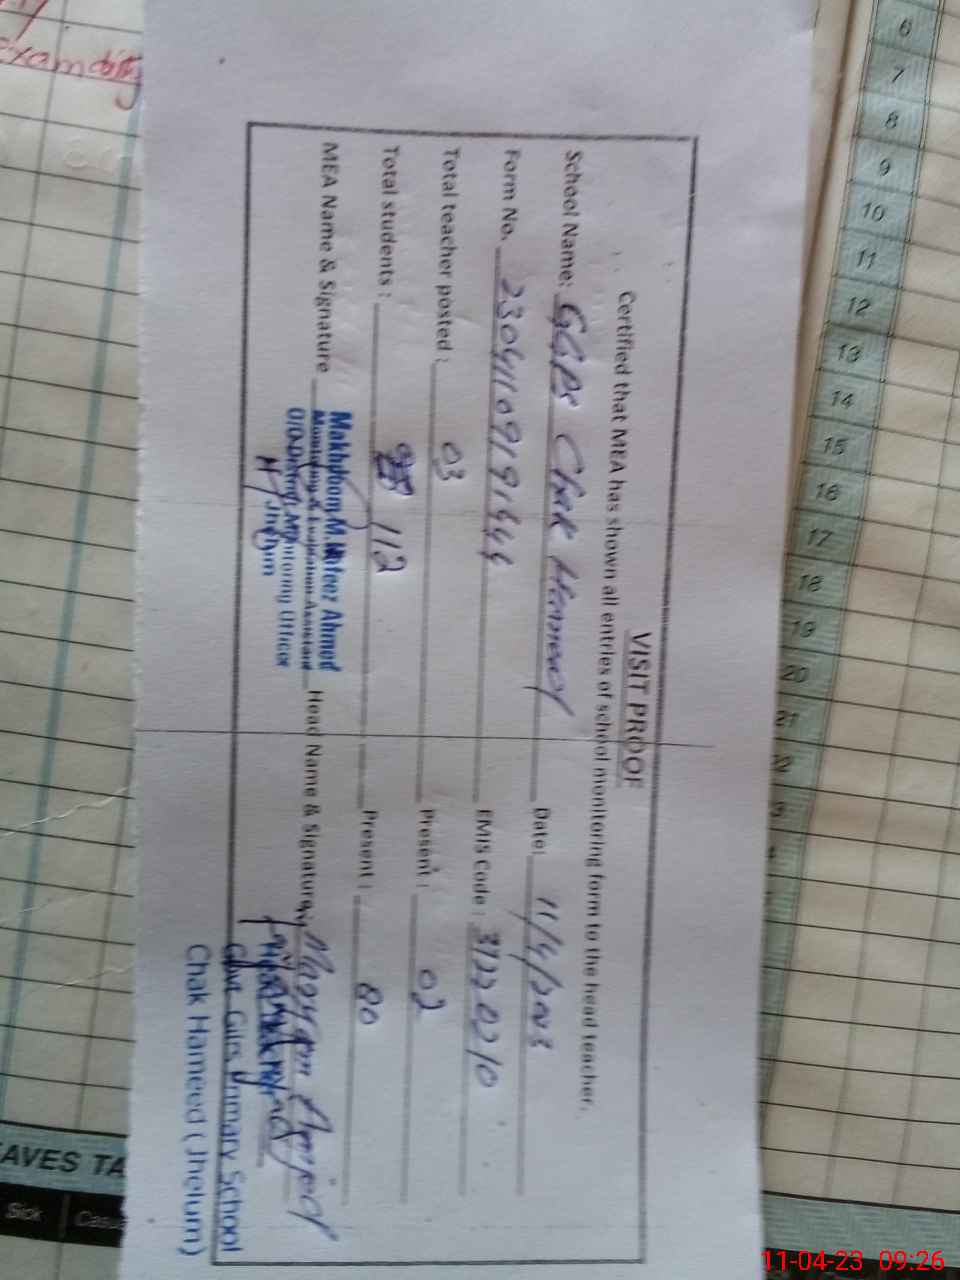 VISIT PROOF
Certified that MEA has shown all entries of school monitoring form to the head teacher.
School Name: GGPS Chak Hameed Date: 11/4/2023
Form No. EMIS Code: 37220210
Total teacher posted: 03 Present: 02
Total students: 112 Present: 80
MEA Name & Signature Head Name & Signature: Maryam Amjad
Ahmed
Monitoring & Evaluation Assistant
O/O District Monitoring Officer
Jhelum
Govt. Girls Primary School
Chak Hameed (Jhelum)
exam
6
7
8
9
10
11
12
13
14
15
16
17
18
19
20
21
AVES TA
Sick
11-04-23 09:26